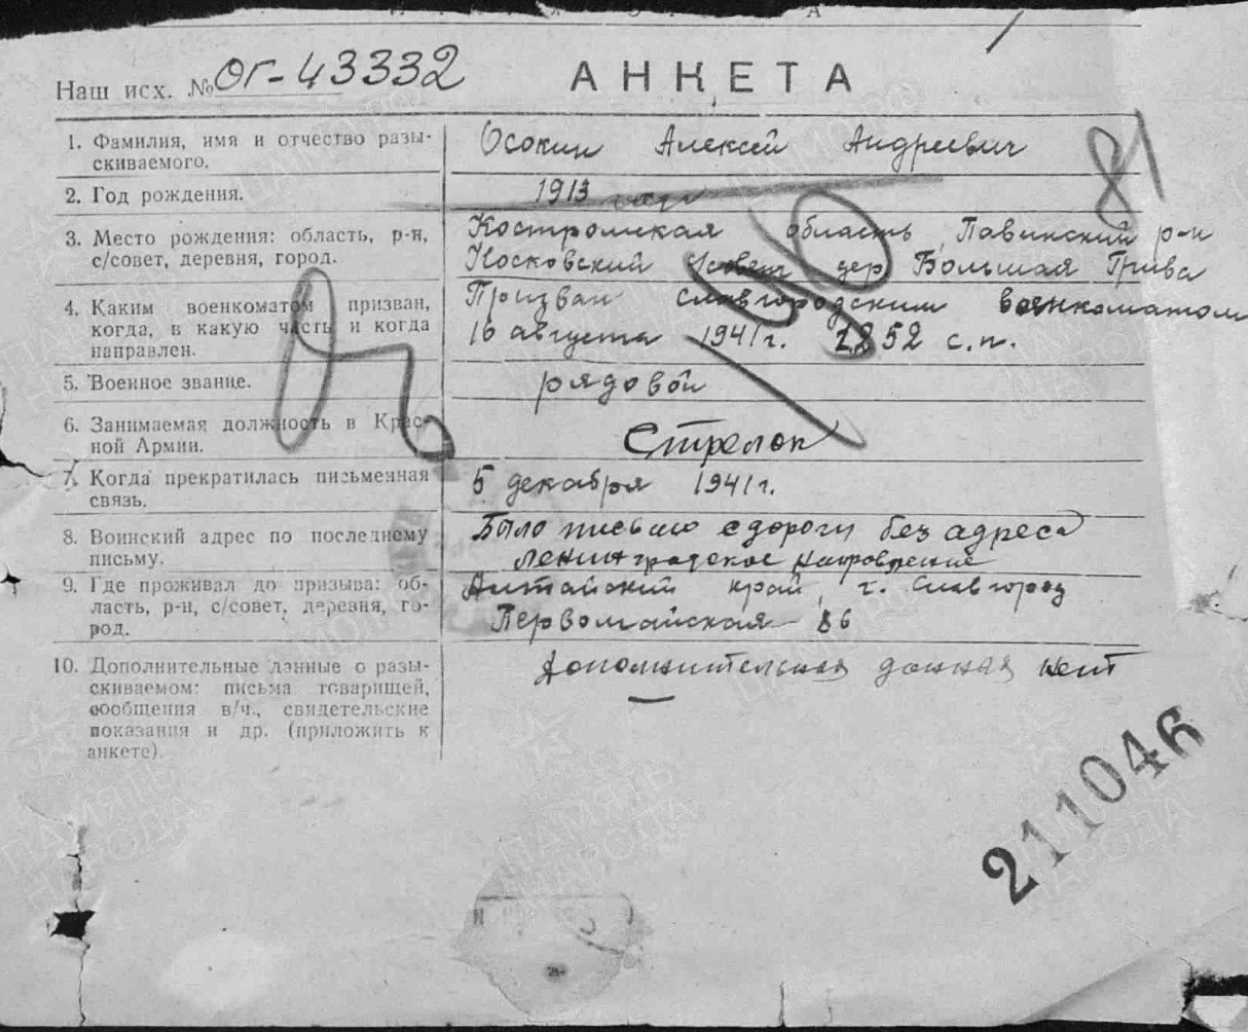 Наш исх. № ОГ-43332
АНКЕТА
81
1. Фамилия, имя и отчество разы-
скиваемого.
Осокин Алексей Андреевич
2. Год рождения.
1913
3. Место рождения: область, р-н,
с/совет, деревня, город.
Костромская область, Павинский р-н
Носковский с/совет дер. Большая Грива
4. Каким военкоматом призван,
когда, в какую часть и когда
направлен.
Призван славгородским военкоматом
16 августа 1941 г. 1252 с.п.
5. Военное звание.
рядовой
6. Занимаемая должность в Крас-
ной Армии.
Стрелок
7. Когда прекратилась письменная
связь.
5 декабря 1941 г.
8. Воинский адрес по последнему
письму.
Было письмо с дороги без адреса
Ленинградское направление
9. Где проживал до призыва: об-
ласть, р-н, с/совет, деревня, го-
род.
Алтайский край, г. Славгород
Первомайская 86
10. Дополнительные данные о разы-
скиваемом: письма товарищей,
сообщения в/ч., свидетельские
показания и др. (приложить к
анкете).
Дополнительная данная нет
211046
ПАМЯТЬ
НАРОДА